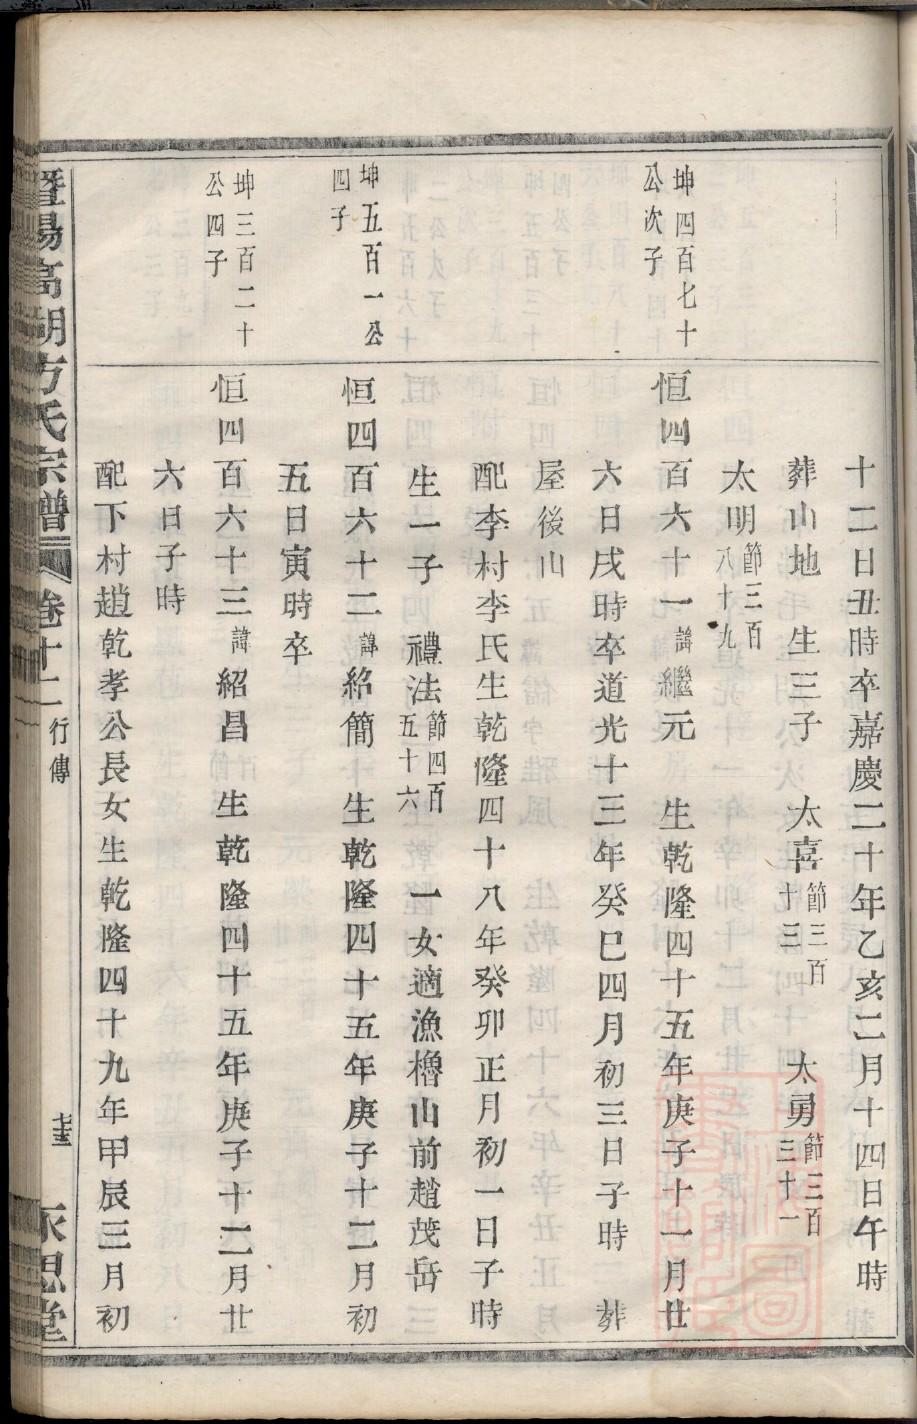 十二日丑時卒嘉慶二十年乙亥二月十四日午時
葬山地 生三子 太喜節三百十三 太勇節三百三十一
太明節三百八十九
坤四百七十公次子
恒四百六十一諱繼元 生乾隆四十五年庚子十一月廿
六日戌時卒道光十三年癸巳四月初三日子時 葬
屋後山
配李村李氏生乾隆四十八年癸卯正月初一日子時
生一子 禮法節四百五十六 一女適漁櫓山前趙茂岳
坤五百一公四子
恒四百六十二諱紹簡 生乾隆四十五年庚子十二月初
五日寅時卒
坤三百二十公四子
恒四百六十三諱紹昌 生乾隆四十五年庚子十二月廿
六日子時
配下村趙乾孝公長女生乾隆四十九年甲辰三月初
暨陽高湖方氏宗譜 卷十二 行傳 永思堂